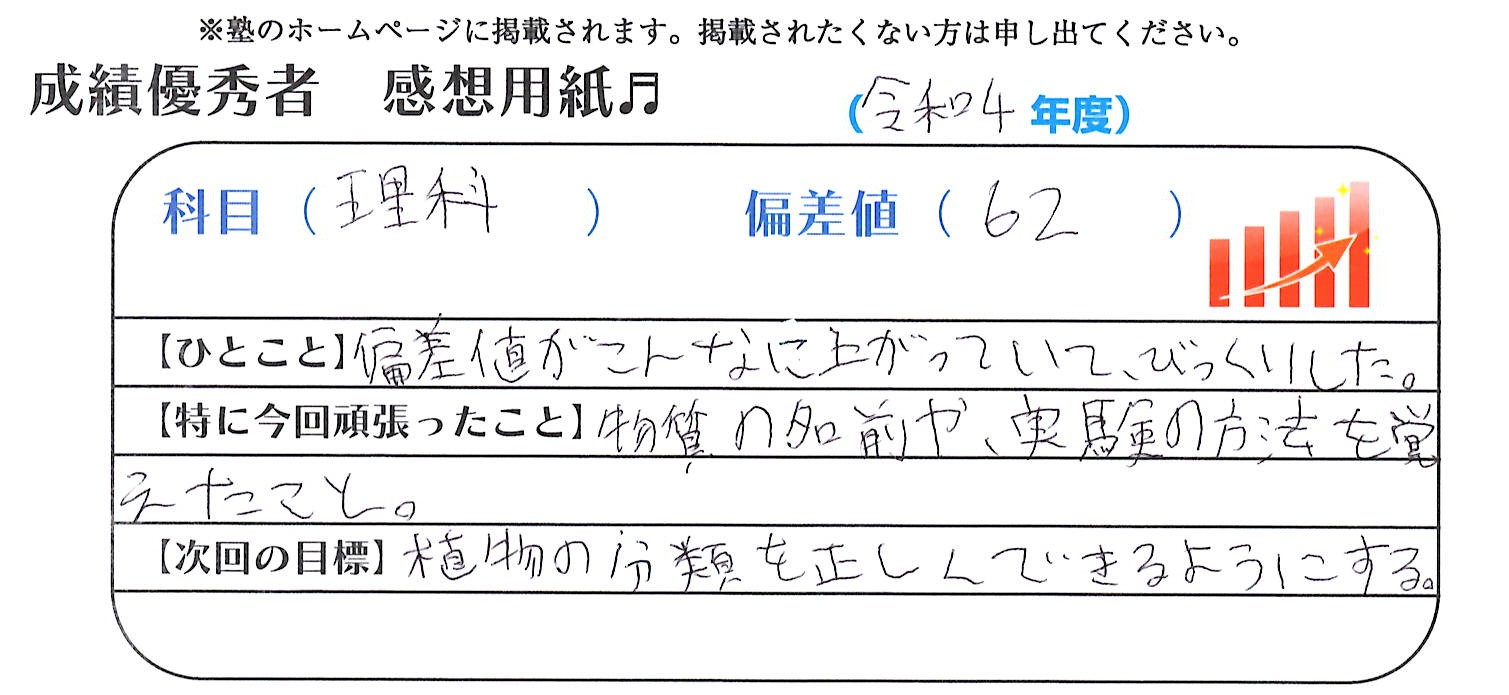 ※塾のホームページに掲載されます。掲載されたくない方は申し出てください。
成績優秀者 感想用紙♬
(令和4年度)
科目(理科) 偏差値(62)
【ひとこと】偏差値がこんなに上がっていて、びっくりした。
【特に今回頑張ったこと】物質の名前や、実験の方法を覚
えたこと。
【次回の目標】植物の分類を正しくできるようにする。